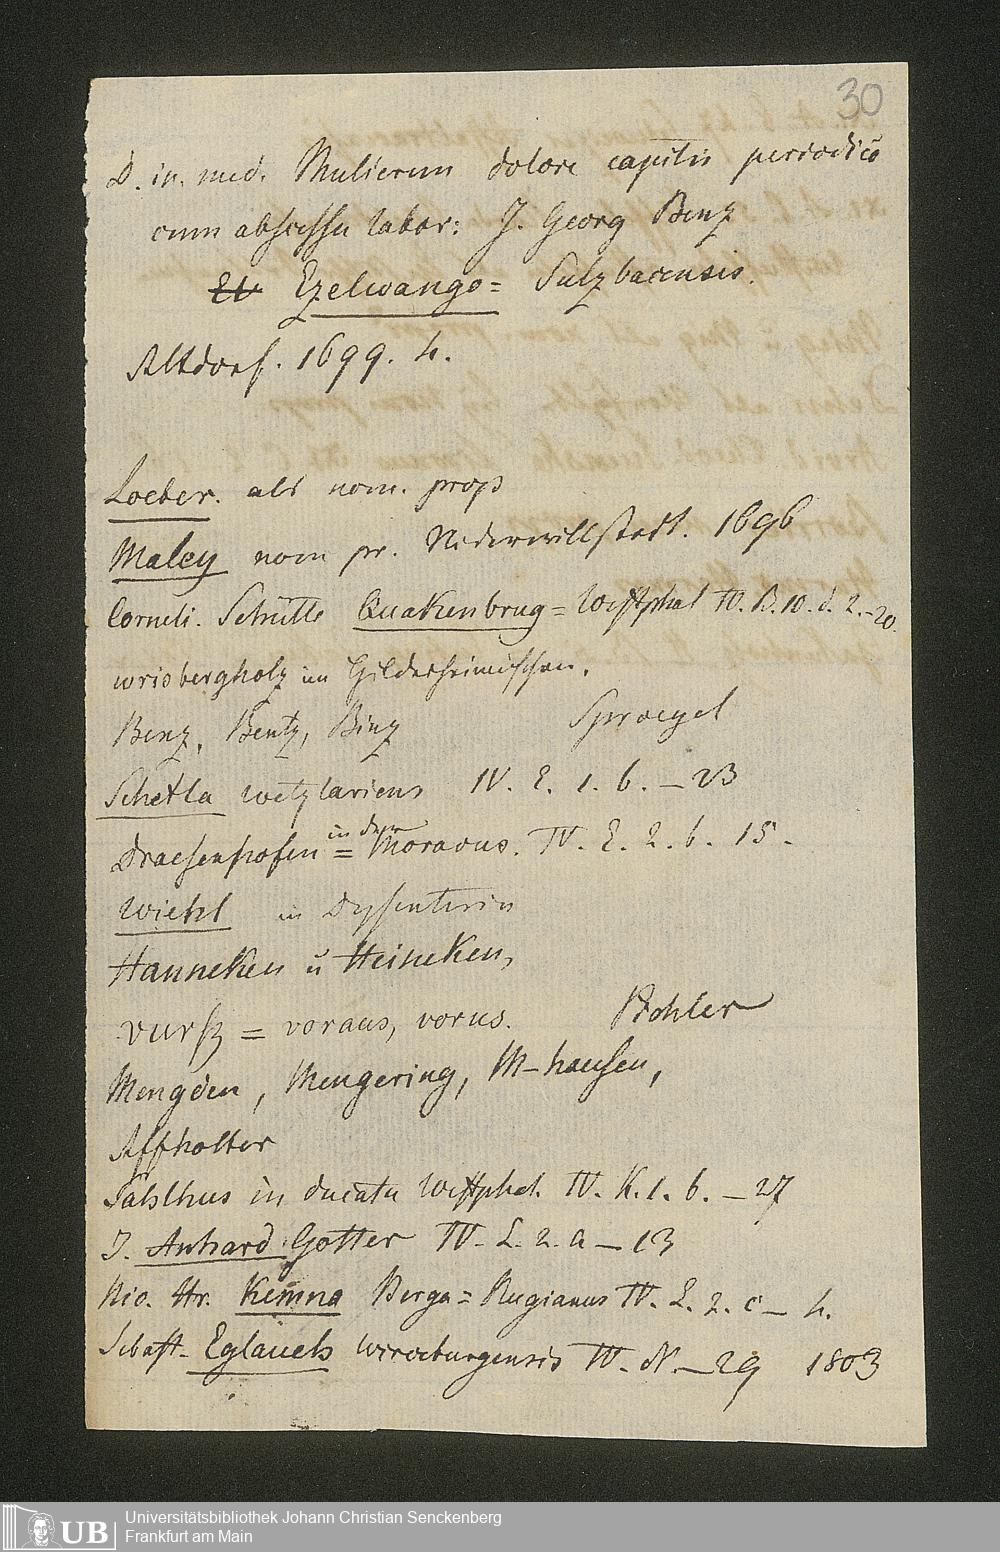 30
D. in. med. Mulierem dolore capitis periodico
cum abscessu labor: J. Georg Benz
Et Ezelwango= Sulzbacensis.
Altdorf. 1699. 4.
Loeber. als nom. prop
Maley nom pr. Niederwillstadt. 1696
Corneli. Schütte Quakenbrug= Westphal IV. B. 10. d. 2.-20.
wrisbergholz im Hildesheimischen.
Benz, Bentz, Binz Sproegel
Schetla wetzlariens IV. E. 1. b. - 23
Draesenhofen = in dem Moravus. IV. E. 2. b. 15.
Wiehl in Dysenterin
Hanneken u Heineken,
vurß = voraus, vorus. Bohler
Mengden, Mengering, M-hausen,
Affholter
Sahlhus in ducatu Westphal. IV. K. 1. b. - 27
J. Anhard Gotter IV. L. 2. a - 13
Nic. Hr. Kemna Berga= Rugianus IV. L. 2. c - 4.
Sebast. Eglauch wirceburgensis IV. N. - 29 1803
UB
Universitätsbibliothek Johann Christian Senckenberg
Frankfurt am Main